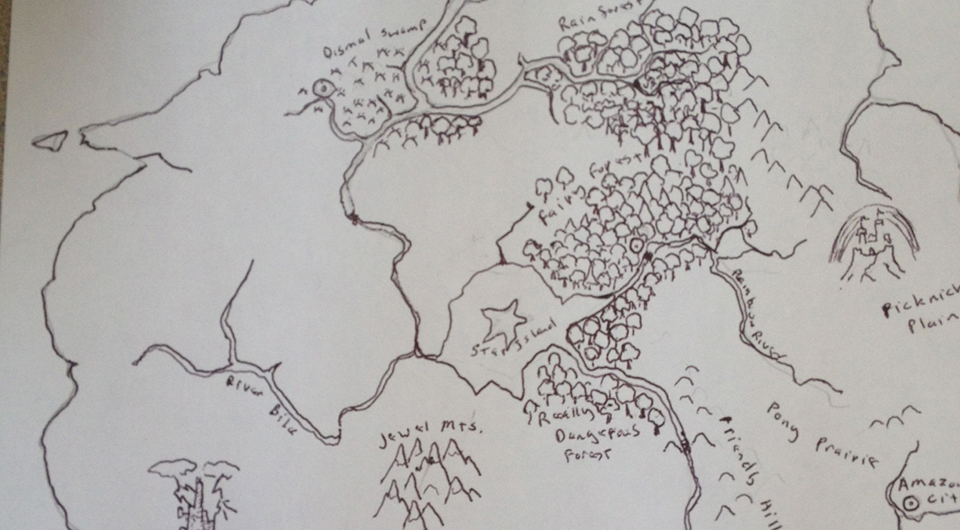 Dismal Swamp
Rain forest
Fair Forest
Rainbow River
Picknick
Plain
Star Island
River Bike
Jewel Mts.
Really
Dangerous
Forest
Friendly Hill
Pony Prairie
Amazon
Cit